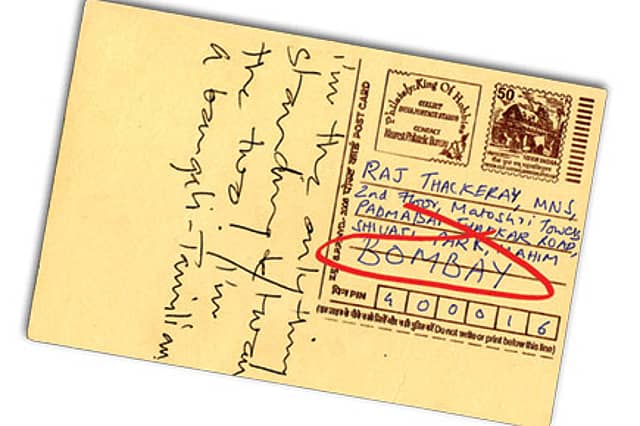 i'm the only thing
standing
the two! I'm
a bengali-Tamilian
पोस्ट कार्ड POST CARD
Philately:King Of Hobbies
COLLECT
INDIA POSTAGE STAMPS
CONTACT
Nearest Philatelic Bureau
50
RAJ THACKERAY, MNS,
2nd Floor, Matoshri Towers
PADMABAI THAKKAR ROAD,
SHIVAJI PARK, MAHIM
BOMBAY
पिन PIN 4 0 0 0 1 6
(Do not write or print below this line)